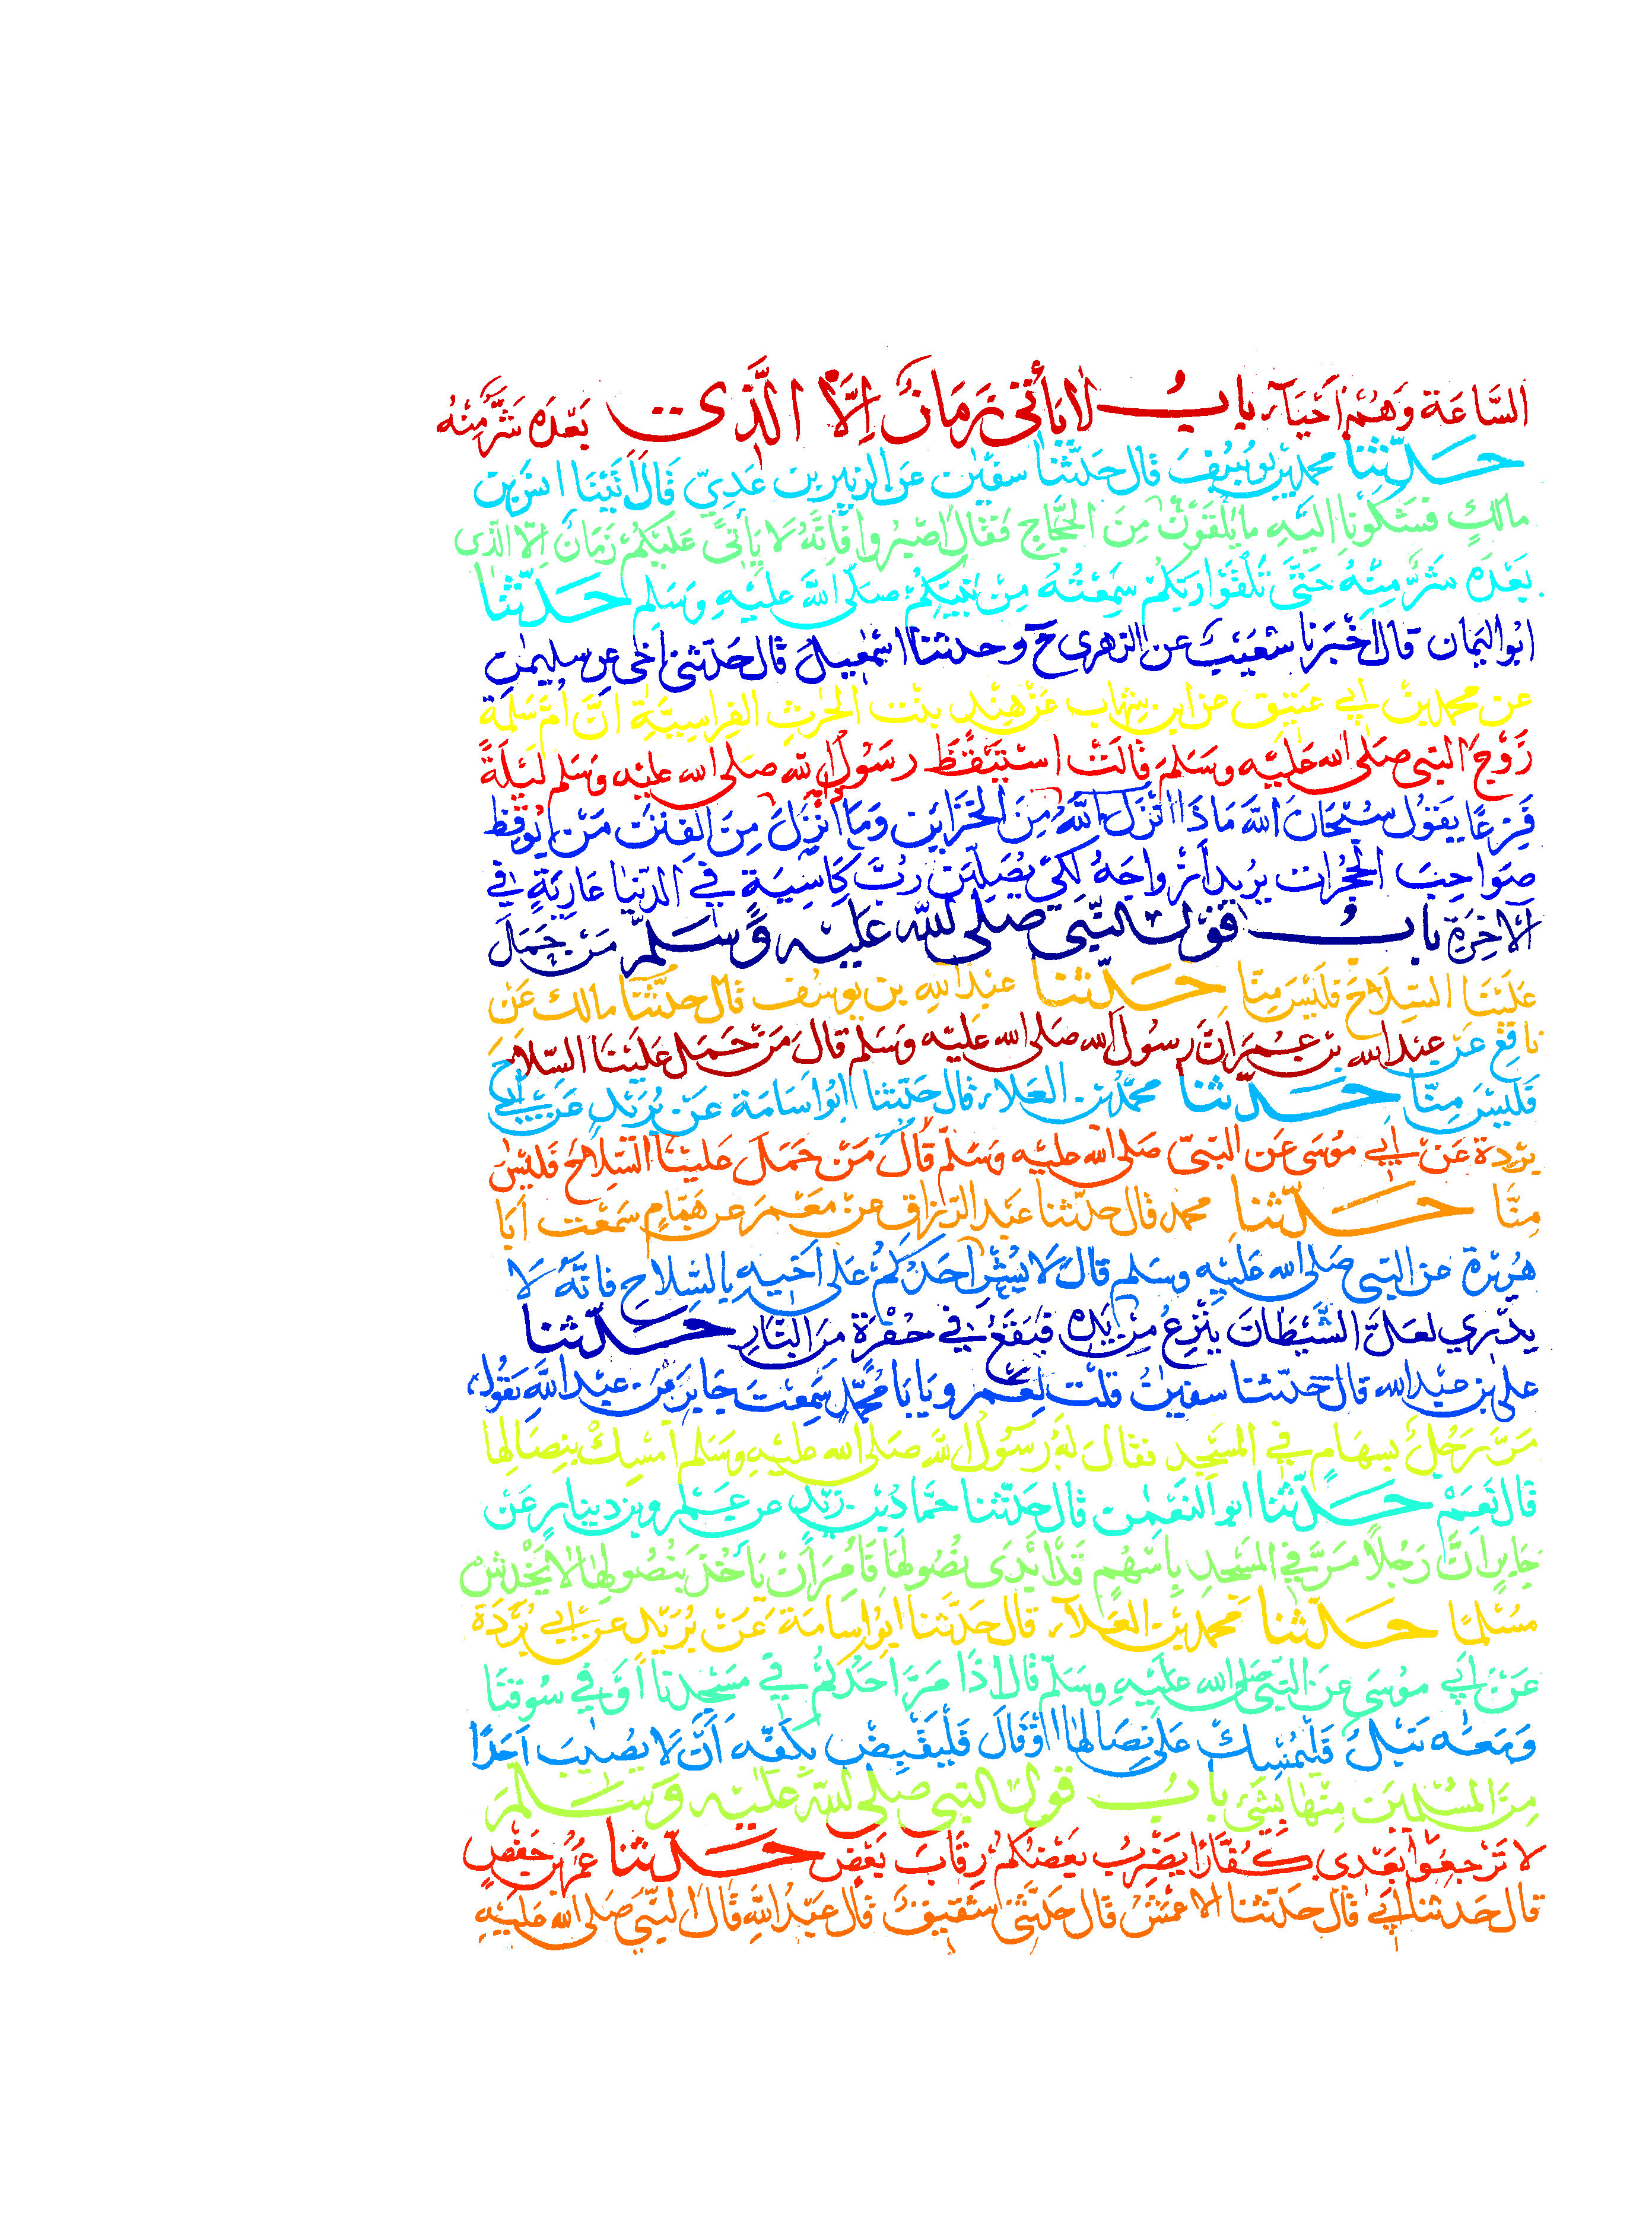 السَّاعَة وَهُمْ اَحْيَآء بابُ لا يَأتى زَمَانٌ اِلَّا الَّذى بَعْدَه شَرٌّ مِنْهُ
حَدّثنا محمد بن يوسُفَ قال حَدّثنا سفيٰن عَن الزبير بن عَدِيّ قَالَ اَتَيْنَا انسَ بن
مالكٍ فشكَوْنا اليَهِ ما يَلْقَوْنَ مِنَ الحَجّاجِ فَقَال اصْبِرُوا فَاِنَّهُ لَا يَأتى عَلَيكُمْ زَمَانٌ اِلّا الذى
بَعْدَه شَرٌّ مِنْهُ حَتَّى تَلْقَوْا رَبَّكُمْ سَمِعْتُهُ مِنْ نَبِيِّكُمْ صَلّى اللَّه عَلَيْهِ وَسَلم حَدّثنا
ابُو اليَمان قال اَخْبَرَنا شعَيبٌ عن الزهرى ح وحدثنا اسْمٰعِيل قال حَدّثنى اخى عن سليمٰن
عن محمد بن اَبي عَتيق عن ابن شِهاب عَنْ هِنْدٍ بِنْت الحٰرثِ الفِراسِيَّةِ اَنَّ اُمَّ سَلَمة
زَوْجَ النبى صَلى الله عَلَيْهِ وسَلمَ قالَتْ اسْتَيْقَظَ رسَوُل الله صلى الله عليْه وَسَلم لَيْلَةً
فَزِعًا يَقوُل سُبْحَانَ اللَّه مَاذَا اَنْزَلَ اللَّهُ مِنَ الخَزَايِن وَمَا اُنْزِلَ مِنَ الفِتَن مَنْ يُوقِظ
صَوَاحِبَ الحُجُرات يريد اَزْواجَهُ لكَىْ يُصَلِّينَ رُبَّ كَاسِيَةٍ فِي الدّنيا عَارِيَةٍ فِي
الآخِرَة بابُ قَوْل النَّبى صَلى اللّه عَلَيْه وَسَلَّم مَنْ حَمَلَ
عَلَيْنَا السِّلَاحَ فَلَيْسَ مِنَّا حَدّثنا عبْد اللَّهِ بن يوسُف قال حدّثنَا مالك عَنْ
نافِعٍ عَن عبْد الله بن عُمَر اَنَّ رسُول الله صَلى الله عَليْه وَسَلم قالَ مَنْ حَمَل عَلَيْنَا السِّلاحَ
فَلَيْسَ مِنّا حَدّثنا محمَّد بن العَلاء قال حَدّثنا ابُو اسَامَة عَنْ بُرَيْدٍ عَنْ اَبي
بردة عَنْ اَبي مُوسَى عَن النبىّ صَلى الله عليْه وَسَلّم قالَ مَنْ حَمَلَ عَلينَا السِّلَاحَ فَلَيْسَ
مِنَّا حَدّثنا محمد قال حدّثنا عبْد الرّزاق عنْ مَعْمَر عن هَمّامٍ سَمعْت اَبا
هُرَيْرة عن النبى صَلى الله عَلَيْه وسَلم قالَ لا يُشيرُ اَحَدُكُمْ عَلى اَخيهِ بِالسِّلاحِ فَاِنَّهُ لَا
يدْرى لعَلَّ الشَّيْطَانَ يَنْزِعُ مِنْ يَدِه فَيَقَعُ فِي حُفْرة مِنَ النَّارِ حَدّثنا
على بن عبْد الله قال حَدّثنا سفيٰنُ قلْت لِعَمْرو يَا بَا مُحَمَّدٍ سَمِعْتَ جَابِرَ بْنَ عبْد اللَّهِ يَقوُل
مَرَّ رَجُلٌ بِسهَام فِي المَسْجِدِ فقَالَ لَهُ رَسُولُ اللَّه صَلى الله عليْهِ وَسَلم اَمْسِكْ بِنِصَالِها
قَال نَعَمْ حَدّثنا ابو النّعْمٰن قال حَدّثنا حَمّادُ بْن زَيْد عن عَمْرو بن دينار عَنْ
جَابر اَنَّ رَجُلًا مَرَّ فِي المَسْجِدِ بِاَسْهُم قَدْ اَبْدَى نُصُولهَا فَاُمِرَ اَنْ يَاْخُذ بِنُصُولِها لا يَخْدِشُ
مُسْلِمًا حَدّثنا محمد بْن العَلآء قال حَدّثنا ابُو اسَامَة عَنْ بُرَيْدٍ عن اَبي بُرْدَة
عَنْ اَبي موُسَى عَن النَّبى صَلى الله عَلَيْهِ وسَلّم قال اِذَا مَرَّ اَحَدُكُمْ فِي مَسْجِدِنا اَوْ فِي سُوقنَا
وَمَعَه نَبْلٌ فَلْيُمْسِك عَلى نِصَالِها اَوْ قَالَ فَلْيَقْبِضْ بِكَفِّه اَنْ لَا يُصيبَ اَحَدًا
مِنَ المُسْلِمينَ مِنْهَا بِشَىْء بابُ قول النبى صَلى اللّه عَلَيْه وَسَلم
لا تَرْجِعُوا بَعْدى كُفّارًا يَضْرِبُ بَعْضُكُمْ رِقَابَ بَعْض حَدّثنا عُمَرُ بن حَفْصٍ
قال حَدثنا اَبي قال حَدّثنا الاعمشُ قال حَدّثَنى شقيقٌ قال عبْدُ اللَّهِ قال النبىّ صَلى الله عَلَيْهِ